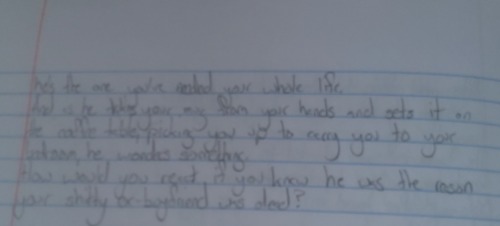 he's the one you've needed your whole life.
And as he takes your mug from your hands and sets it on
the coffee table, picking you up to carry you to your
bedroom, he wonders something.
How would you react if you knew he was the reason
your shitty ex-boyfriend was dead?